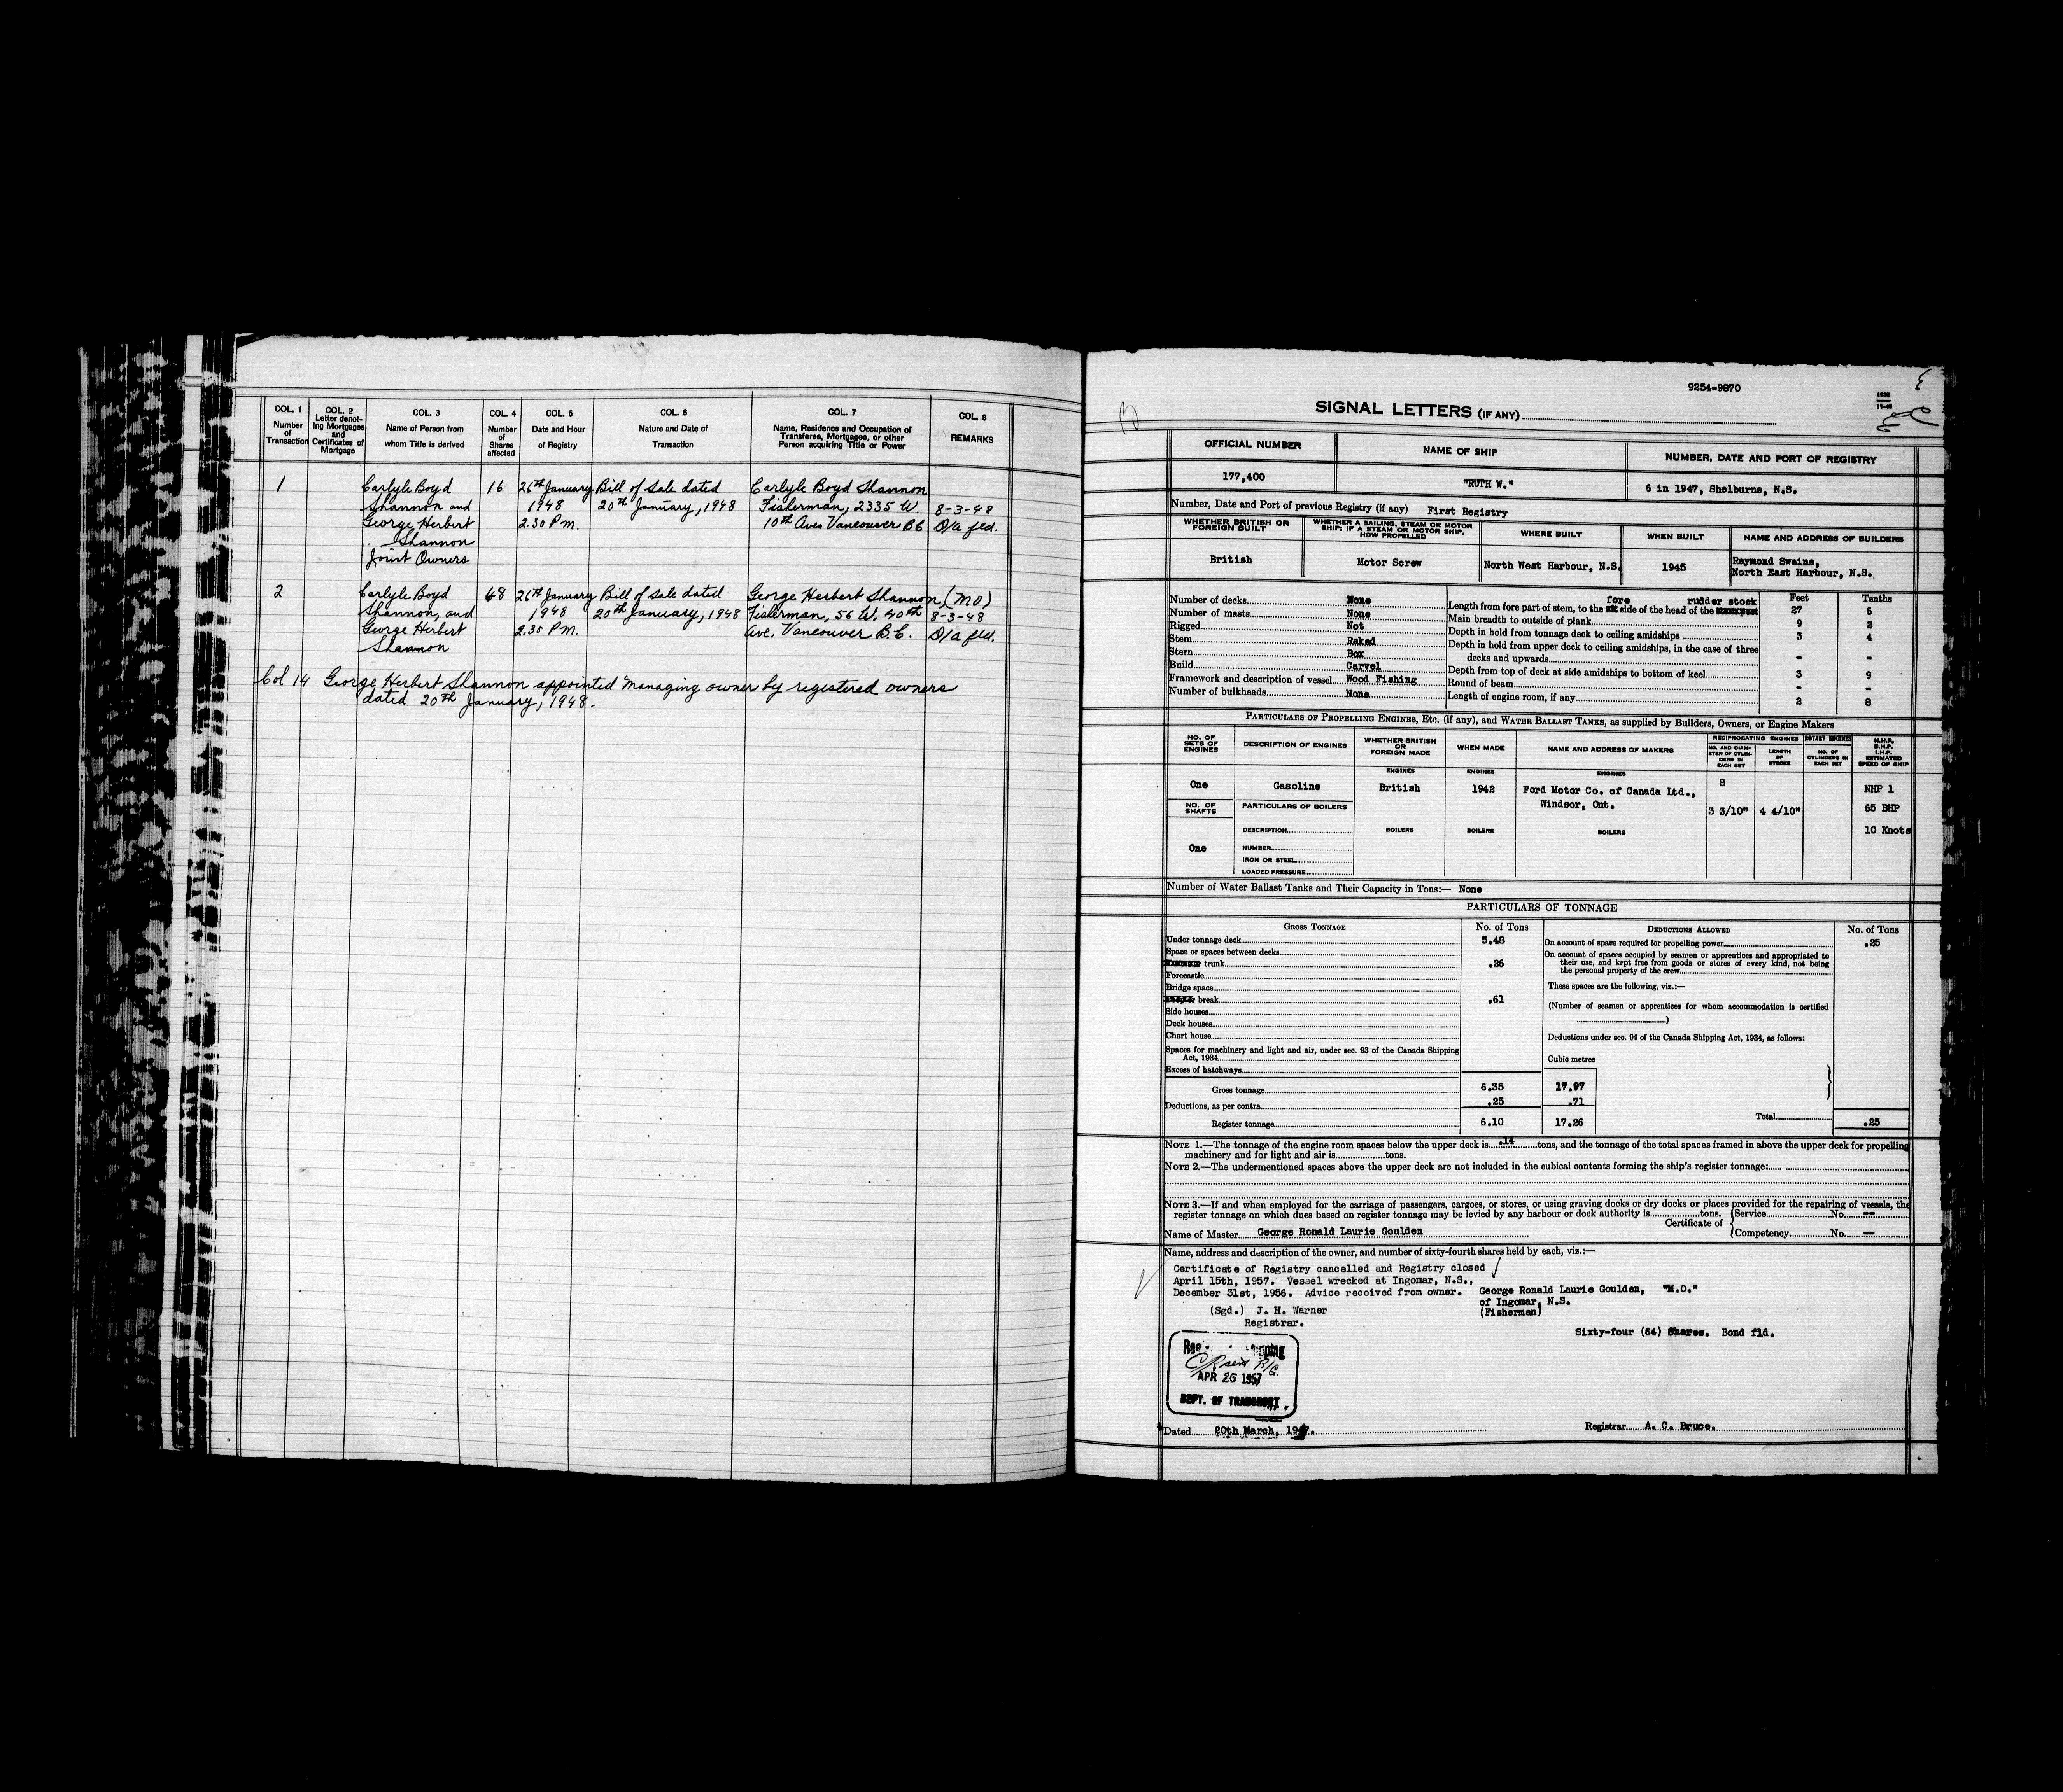 COL. 1 Number of Transaction
COL. 2 Letter denoting Mortgages and Certificates of Mortgage
COL. 3 Name of Person from whom Title is derived
COL. 4 Number of Shares affected
COL. 5 Date and Hour of Registry
COL. 6 Nature and Date of Transaction
COL. 7 Name, Residence and Occupation of Transferee, Mortgagee, or other Person acquiring Title or Power
COL. 8 REMARKS
1 Carlyle Boyd 16 26th January Bill of Sale dated Carlyle Boyd Shannon
Shannon and 1948 20th January, 1948 Fisherman, 2335 W. 8-3-48
George Herbert 2.30 P.m. 10th Ave. Vancouver B.C D/a fld.
Shannon
Joint Owners
2 Carlyle Boyd 48 26th January Bill of Sale dated George Herbert Shannon, (MO)
Shannon, and 1948 20th January, 1948 Fisherman, 56 W. 40th 8-3-48
George Herbert 2.30 P.M. Ave. Vancouver B.C. D/a fld.
Shannon
Col 14 George Herbert Shannon appointed Managing owner by registered owners
dated 20th January, 1948.
9254-9870
SIGNAL LETTERS (IF ANY)
OFFICIAL NUMBER NAME OF SHIP NUMBER, DATE AND PORT OF REGISTRY
177,400 "RUTH W." 6 in 1947, Shelburne, N.S.
Number, Date and Port of previous Registry (if any) First Registry
WHETHER BRITISH OR FOREIGN BUILT
WHETHER A SAILING, STEAM OR MOTOR SHIP; IF A STEAM OR MOTOR SHIP, HOW PROPELLED
WHERE BUILT
WHEN BUILT
NAME AND ADDRESS OF BUILDERS
British Motor Screw North West Harbour, N.S. 1945 Raymond Swaine,
North East Harbour, N.S.
Feet Tenths
Number of decks None
Number of masts None
Rigged Not
Stem Raked
Stern Box
Build Carvel
Framework and description of vessel Wood Fishing
Number of bulkheads None
fore rudder stock
Length from fore part of stem, to the side of the head of the 27 6
Main breadth to outside of plank 9 2
Depth in hold from tonnage deck to ceiling amidships 3 4
Depth in hold from upper deck to ceiling amidships, in the case of three
decks and upwards - -
Depth from top of deck at side amidships to bottom of keel 3 9
Round of beam - -
Length of engine room, if any 2 8
PARTICULARS OF PROPELLING ENGINES, ETC. (if any), and WATER BALLAST TANKS, as supplied by Builders, Owners, or Engine Makers
NO. OF SETS OF ENGINES
DESCRIPTION OF ENGINES
WHETHER BRITISH OR FOREIGN MADE
WHEN MADE
NAME AND ADDRESS OF MAKERS
RECIPROCATING ENGINES
NO. AND DIAMETER OF CYLINDERS IN EACH SET
LENGTH OF STROKE
ROTARY ENGINES
NO. OF CYLINDERS IN EACH SET
N.H.P. B.H.P. I.H.P. ESTIMATED SPEED OF SHIP
ENGINES ENGINES ENGINES
One Gasoline British 1942 Ford Motor Co. of Canada Ltd., 8 NHP 1
Windsor, Ont. 3 3/10" 4 4/10" 65 BHP
NO. OF SHAFTS PARTICULARS OF BOILERS
DESCRIPTION BOILERS BOILERS BOILERS 10 Knots
One NUMBER
IRON OR STEEL
LOADED PRESSURE
Number of Water Ballast Tanks and Their Capacity in Tons:— None
PARTICULARS OF TONNAGE
GROSS TONNAGE No. of Tons
Under tonnage deck 5.48
Space or spaces between decks
trunk .26
Forecastle
Bridge space
break .61
Side houses
Deck houses
Chart house
Spaces for machinery and light and air, under sec. 93 of the Canada Shipping
Act, 1934
Excess of hatchways
Gross tonnage 6.35 17.97
Deductions, as per contra .25 .71
Register tonnage 6.10 17.26
DEDUCTIONS ALLOWED No. of Tons
On account of space required for propelling power .25
On account of spaces occupied by seamen or apprentices and appropriated to
their use, and kept free from goods or stores of every kind, not being
the personal property of the crew
These spaces are the following, viz.:—
(Number of seamen or apprentices for whom accommodation is certified
)
Deductions under sec. 94 of the Canada Shipping Act, 1934, as follows:
Cubic metres
Total .25
NOTE 1.—The tonnage of the engine room spaces below the upper deck is .14 tons, and the tonnage of the total spaces framed in above the upper deck for propelling
machinery and for light and air is tons.
NOTE 2.—The undermentioned spaces above the upper deck are not included in the cubical contents forming the ship's register tonnage:
NOTE 3.—If and when employed for the carriage of passengers, cargoes, or stores, or using graving docks or dry docks or places provided for the repairing of vessels, the
register tonnage on which dues based on register tonnage may be levied by any harbour or dock authority is tons.
Certificate of Service No. —
Competency No. —
Name of Master George Ronald Laurie Goulden
Name, address and description of the owner, and number of sixty-fourth shares held by each, viz.:—
Certificate of Registry cancelled and Registry closed
April 15th, 1957. Vessel wrecked at Ingomar, N.S.,
December 31st, 1956. Advice received from owner.
(Sgd.) J. H. Warner
Registrar.
George Ronald Laurie Goulden, "M.O."
of Ingomar, N.S.
(Fisherman)
Sixty-four (64) Shares. Bond fld.
APR 26 1957
DEPT. OF TRANSPORT
Dated 20th March, 1947.
Registrar A. C. Bruce.